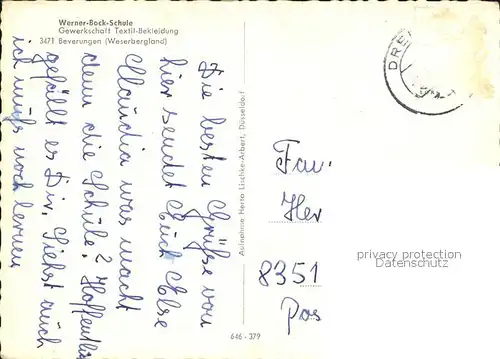 Werner-Bock-Schule
Gewerkschaft Textil-Bekleidung
3471 Beverungen (Weserbergland)
Die besten Grüße von
hier sendet Euch Else
Claudia was macht
denn die Schule? Hoffentlich
gefällt es Dir. Siehst auch
ich muß noch lernen
Aufnahme Herta Lischke-Arbert, Düsseldorf
646 - 379
DRE
Fam.
Her
8351
Pos
privacy protection
Datenschutz